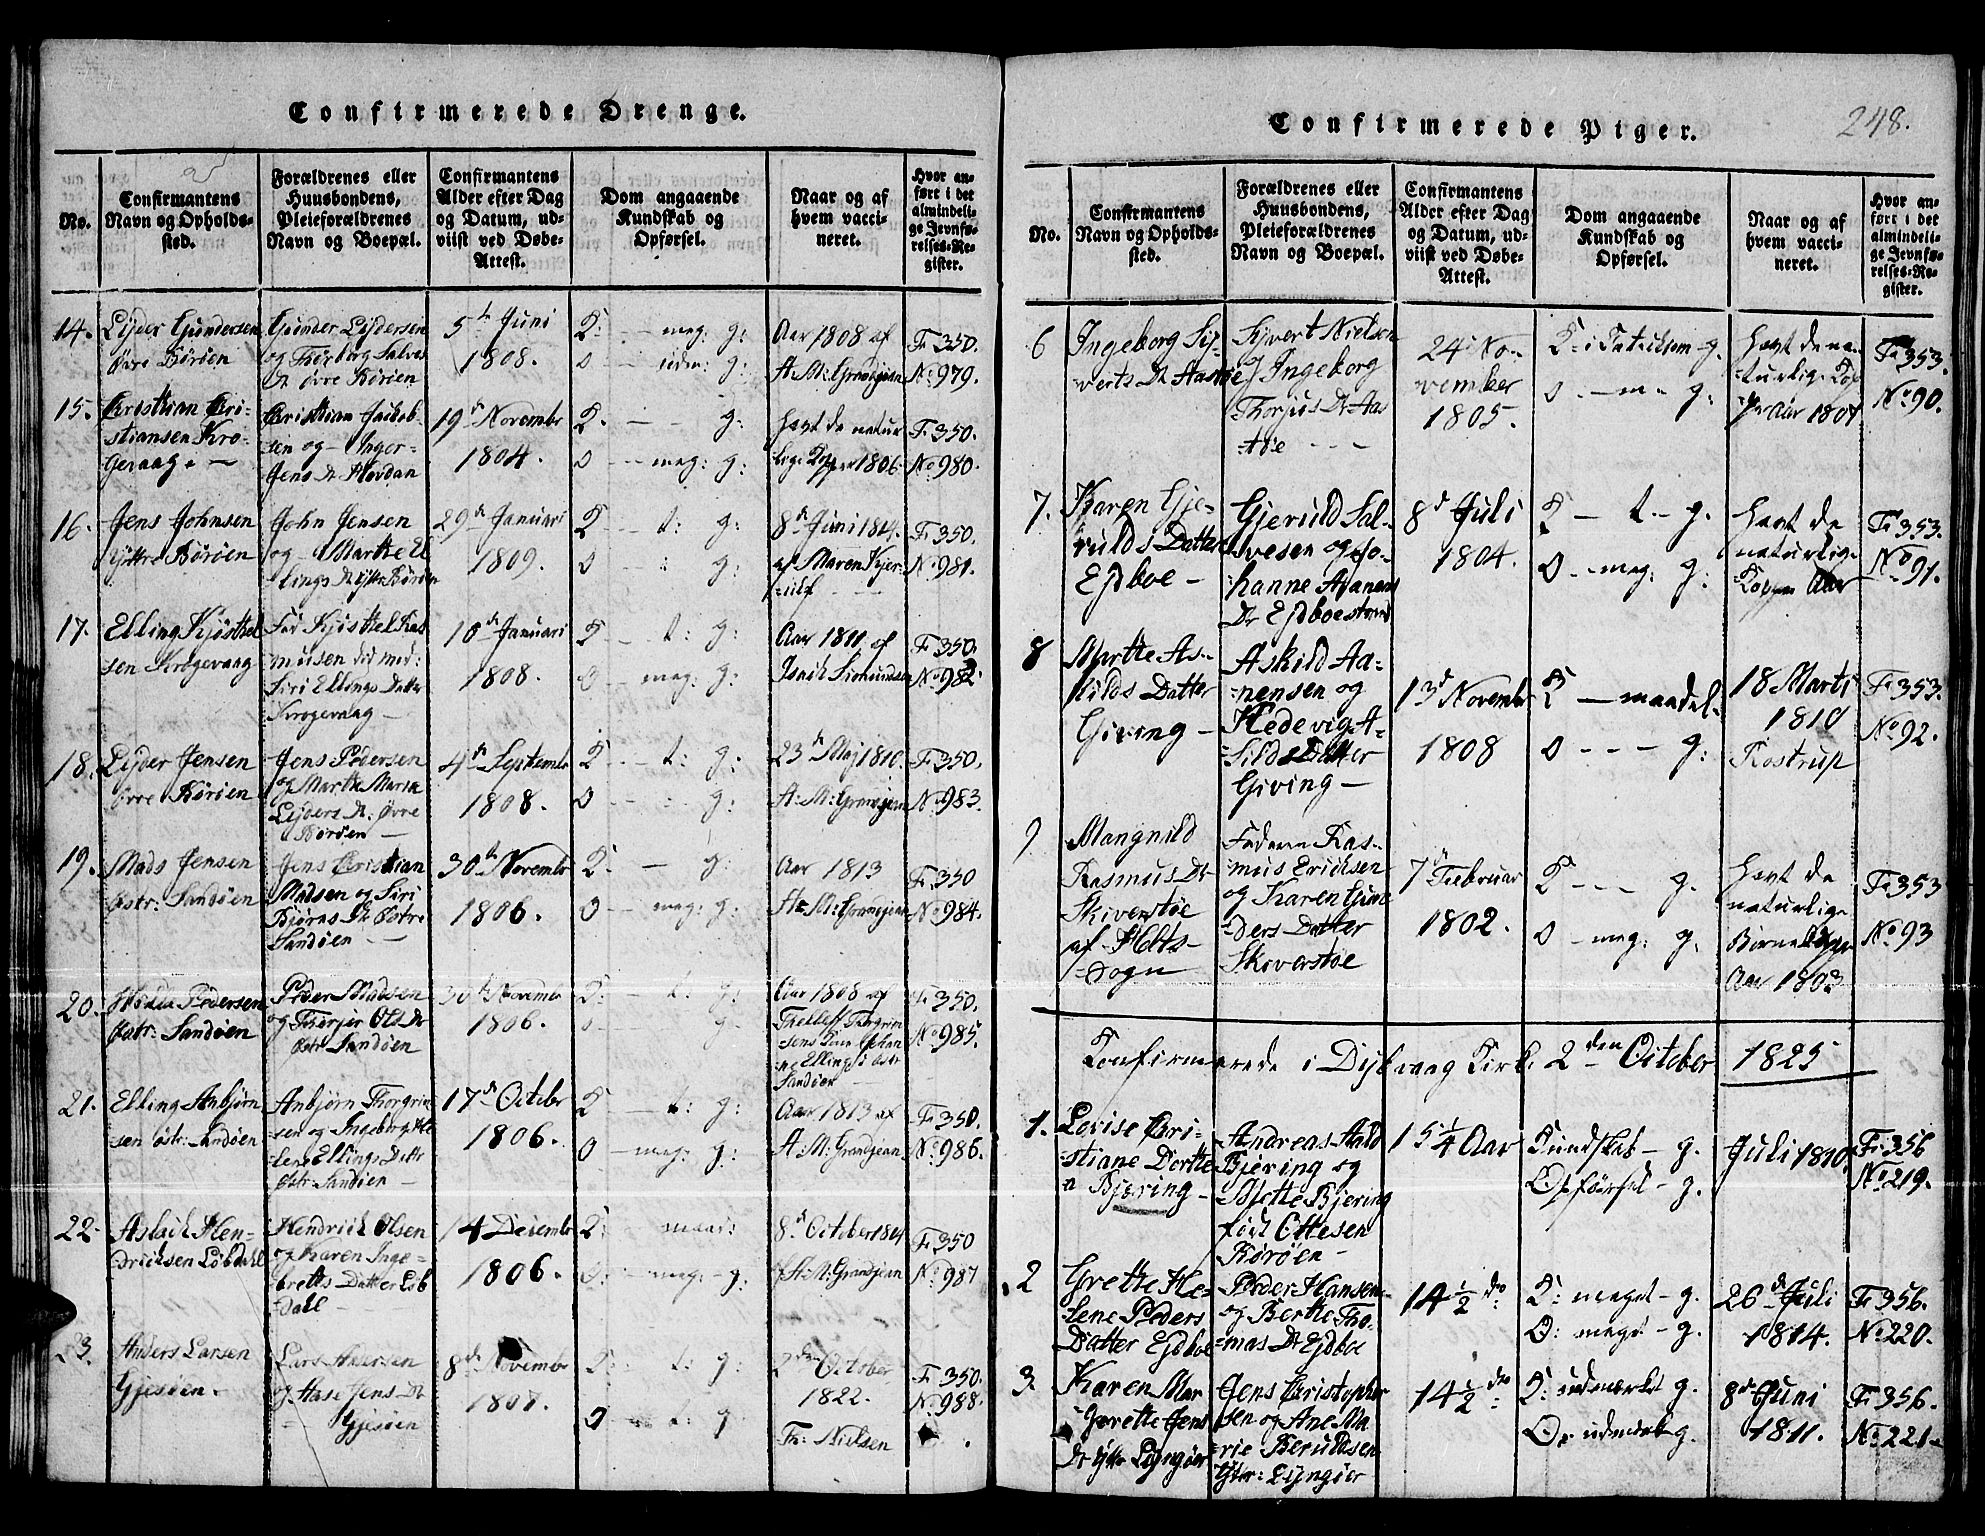 Confirmerede Drenge.
No.
Confirmantens
Navn og Opholds-
sted.
Forældrenes eller
Huusbondens,
Pleieforældrenes
Navn og Boepæl.
Confirmantens
Alder efter Dag
og Datum, ud-
viist ved Døbe-
Attest.
Dom angaaende
Kundskab og
Opførsel.
Naar og af
hvem vacci-
neret.
Hvor an-
ført i det
almindeli-
ge Jevnfø-
relses-Re-
gister.
14.
Lyder Gundersen
øvre Børøen
Gunder Lydersen
og Thorborg Salves
Dr øvre Børøen
5te Juni
1808.
K: - meg: g:
O - g:
Aar 1808 af
A: M: Grandjean
F: 350.
No 979.
15.
Cristhian Cri-
stiansen Kro-
gevaag. -
Cristhian Jackob-
sen og - Inger
Jens Dr
19de Novembr
1804.
K. - - g:
O - - meg: g:
havt de natur
lige Kopper 1806.
F. 350.
No. 980.
16.
Jens Johnsen
Yttre Børøen
John Jensen
og - Marthe El
lings Dr Yttre Børøen
29de Januari
1809.
K - t: g:
O - : g:
8de Juni 1814.
af Maren Kjer-
=ulf
F: 350.
No. 981.
17.
Elling Kjøsthel
sen Krogevaag
Fad Kjøsthel Ras
musen død mod:
Siri Ellings Datter
Krogevaag -
10de Januari
1808.
K - - t: g:
O - meg: g:
Aar 1811 af
Isack Sigmundsen
F: 350.
No 982.
18.
Lyder Jensen
Øvre Børøen
Jens Pedersen
og Marthe Maria
Lyders Dr. Øvre
Børøen -
4de Septembr
1808.
K - - t: g:
O - - : g:
23de Maj 1810.
A: M: Grandjean
F: 350.
No 983.
19.
Mads Jensen
Østr: Sandøen
Jens Cristian
Madsen og Siri
Bjørns Dr Østre
Sandøen - -
30te Novembr
1806.
K - - g:
O - - meg: g:
Aar 1813
A: M: Grandjean
F: 350
No 984.
20.
Pedersen
Østr: Sandøen
Peder Madsen
og Thorjer Ols Dr
Østr Sandøen
30te Novembr
1806.
K: - t: g:
O - g:
Aar 1808 af
Thellef Thorgrim
sens
Ellings Østr
Sandøen
F: 350.
No 985.
21.
Elling Anbjørn
sen Østr: Sandøen
Anbjørn Thorgrim
sen og Ingeborg He
lene Ellings Dattr
Østr: Sandøen -
17de Octobr
1806.
K - - t: g:
O - meg: g:
Aar 1813 af
A: M: Grandjean
F: 350.
No 986.
22.
Aslack Hen-
dricksen Løbdahl
Hendrick Olsen
og Karen Inge-
bretts Datter Løb
=dahl -
14 Decembr
1806.
K: -
O: - meg: - g.
8de October 1814
A: M: Grandjean
F: 350
No. 987
23.
Anders Larsen
Gjesøen.
Lars Andersen
og Aase Jens Dr
- Gjesøen
8de Novembr
1807.
K: - t: g:
O - t: g:
2den October
1822.
Fr: Nielsen
F: 350.
No. 988.
Confirmerede Piger.
248.
No.
Confirmantens
Navn og Opholds-
sted.
Forældrenes eller
Huusbondens,
Pleieforældrenes
Navn og Boepæl.
Confirmantens
Alder efter Dag
og Datum, ud-
viist ved Døbe-
Attest.
Dom angaaende
Kundskab og
Opførsel.
Naar og af
hvem vacci-
neret.
Hvor an-
ført i det
almindeli-
ge Jevnfø-
relses-Re-
gister.
6
Ingeborg Sy-
verts Dr Aasbøe
Syvert Nielsen
og Ingeborg
Thorjus Dr Aas
bøe - - -
24 No-
vember
1805.
K - g.
O - m - g.
havt de na-
turlige Kop
per Aar 1807
F: 353.
No 90.
7.
Karen Gje-
rulds Datter
Ejdboe -
Gjeruld Sal-
vesen og Jo-
hanne Aanens
Dr Ejdboestrand
8de Juli
1804.
K - t. - g.
O - meg: g:
havt de
naturlige
Kopper Aar
F: 353.
No 91.
8
Marthe As-
kilds Datter
Giving -
Askild Aa-
=nensen og
Hedevig A-
Datter
Giving -
13de Novembr
1808
K - maadel.
O - - - g:
18 Marts
1810
Rostrup
F: 353.
No 92.
9
Mangnild
Rasmus Dr
Skiverstøe
af Holts-
=Sogn
Faderen Ras-
mus Ericksen
og Karen Gun
=ders Datter
Skoverstøe
7de Februar
1802.
K - - - g.
O - meg: g.
havt de
naturlige
Børnekopper
Aar 1803
F: 353
No. 93
Confirmerede i Dybvaag Kirke 2den October 1825
1.
Lovise Cri-
=stiane Dorthe
a Bjering -
Andreas
Bjering og
Mette Bjering
født Ottesen
Børøen -
15 1/4 Aar
Kundskab - g.
Opførsel - g.
Juli 1810.
F: 356
No. 219.
2
Grethe He-
lene Peders
Datter Ejdboe
Peder Hansen
og Berthe Tho-
=mas Dr Ejdboe
14 1/2 do:
K: meget - g.
O: meget - g.
26de Juli
1814.
F: 356.
No. 220.
3.
Karen Mar
grethe Jens
Dr Yttre Lyngøer
Jens Christopher
sen og Ane Ma
=rie Beruldsen
Yttr: Lyngøer
14 1/2 do:
K: udmærket g.
O: udmærket g.
8de Juni
1811.
F: 356.
No. 221.